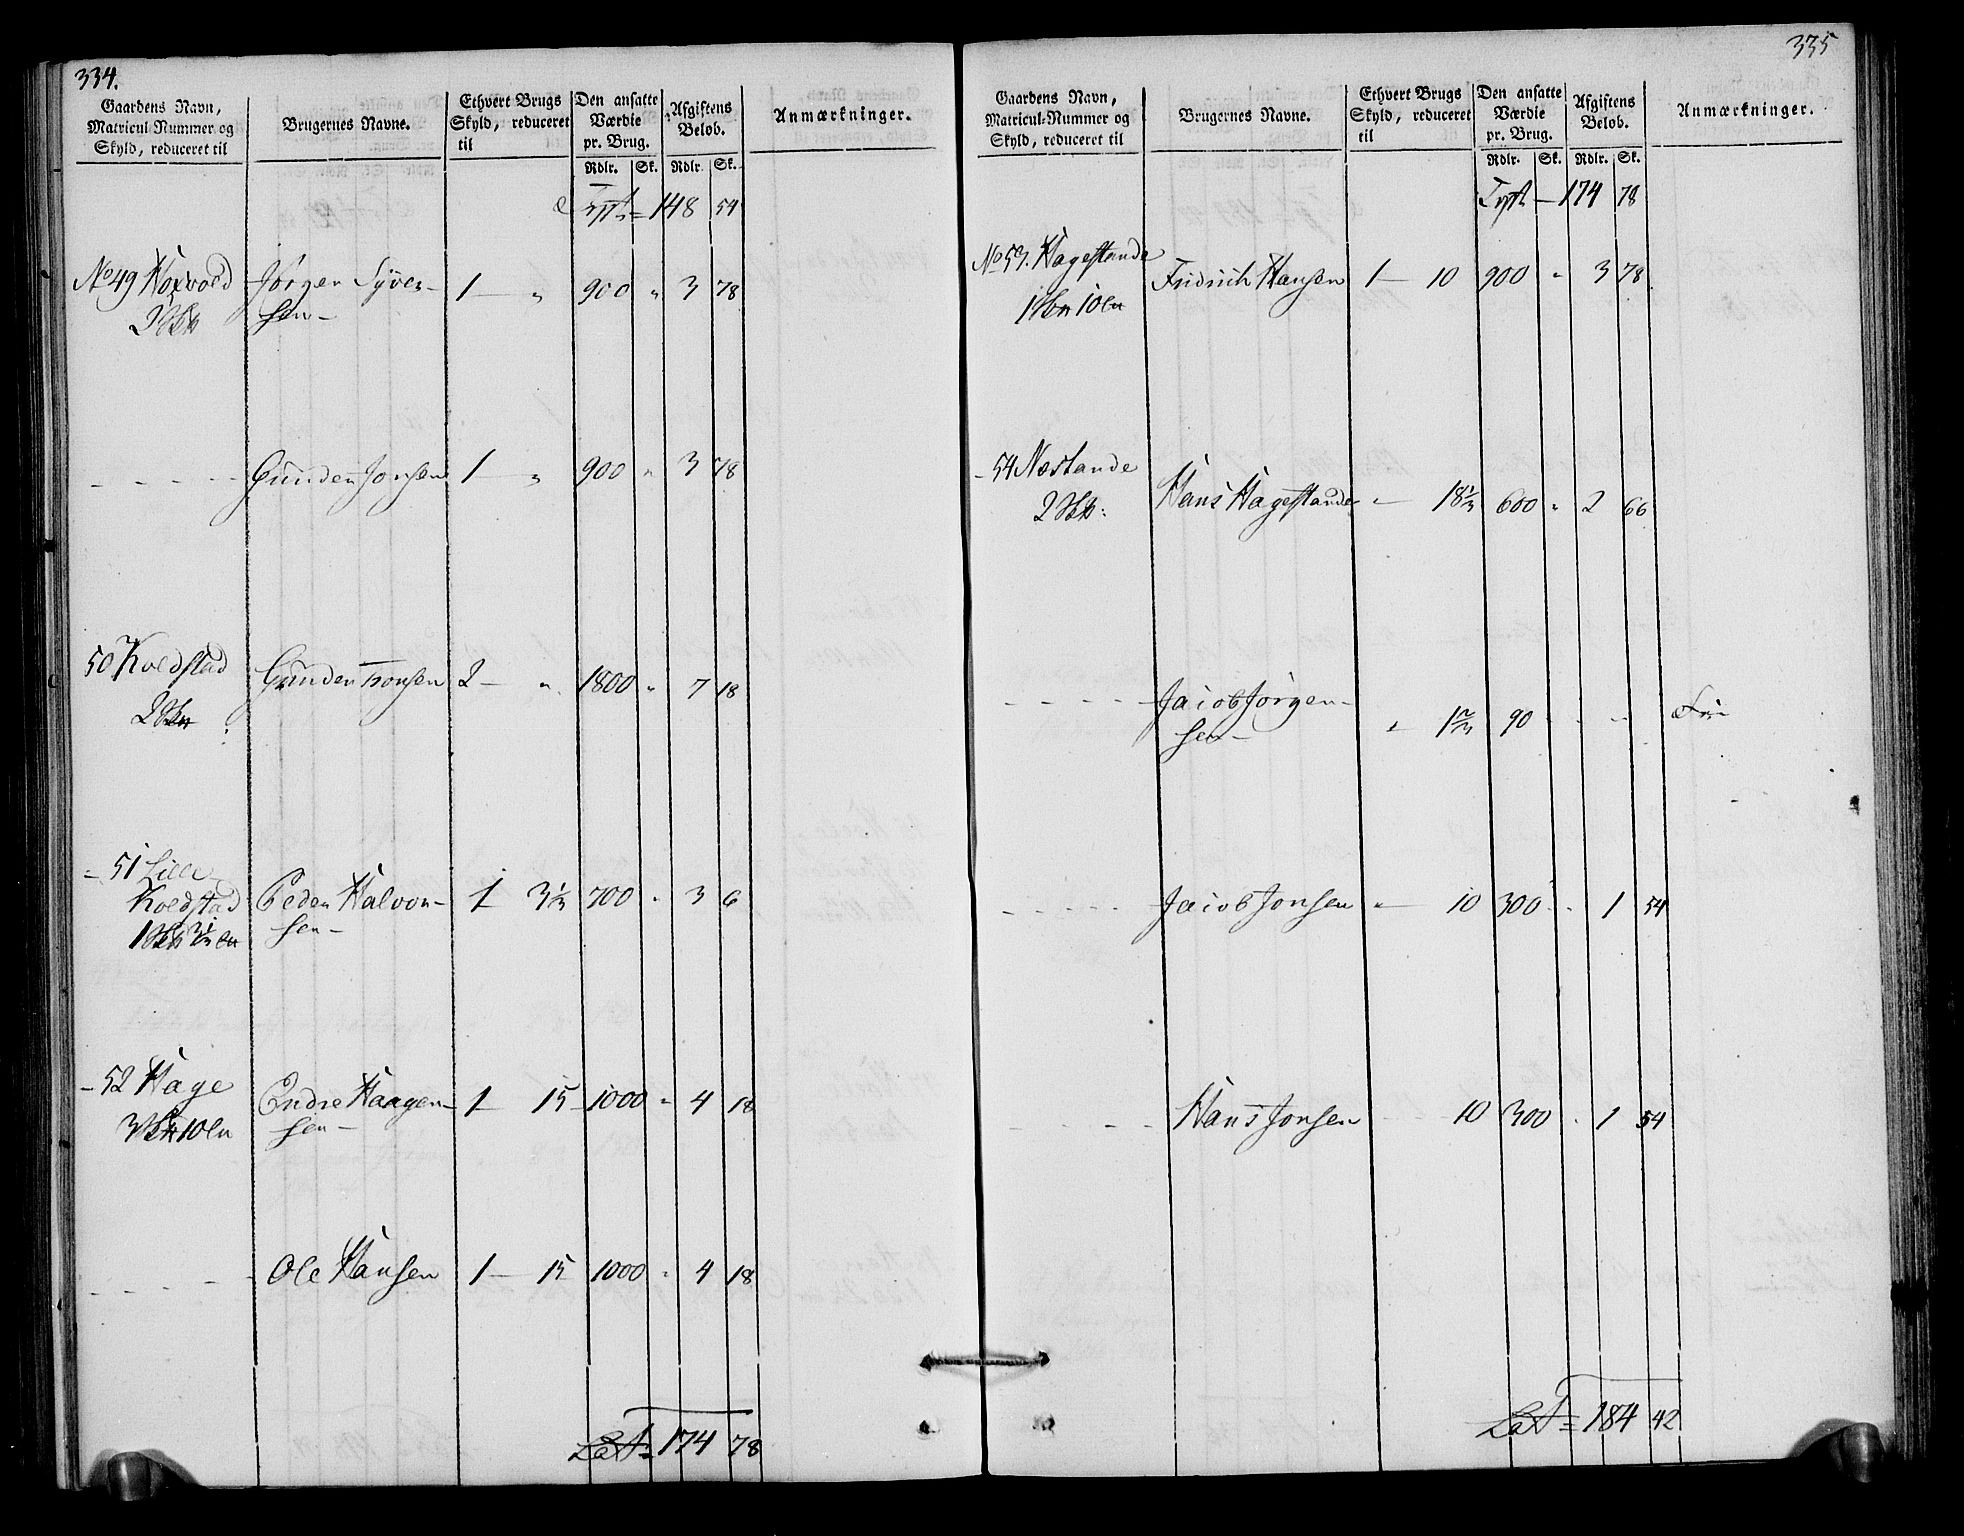 334.
Gaardens Navn,
Matricul-Nummer og
Skyld, reduceret til
Brugernes Navne.
Ethvert Brugs
Skyld, reduceret
til
Den ansatte
Værdie
pr. Brug.
Afgiftens
Beløb.
Anmærkninger.
Rdlr. Sk. Rdlr. Sk.
148 54
No 49 Hoxvold Jørgen Syver- 1 — „ 900 „ 3 78
2 sen-
- - - - - Gunder Jonsen 1 — „ 900 „ 3 78
50 Koldstad Gunder Jonsen 2 — „ 1800 „ 7 18
2
- 51 Lille
Koldstad Peder Halvor- 1 3 1/3 700 „ 3 6
1 3 1/3 sen-
- 52 Hage Endre Haagen- 1 — 15 1000 „ 4 18
3 10 sen-
- - - - Ole Hansen 1 — 15 1000 „ 4 18
174 78
335
Gaardens Navn,
Matricul-Nummer og
Skyld, reduceret til
Brugernes Navne.
Ethvert Brugs
Skyld, reduceret
til
Den ansatte
Værdie
pr. Brug.
Afgiftens
Beløb.
Anmærkninger.
Rdlr. Sk. Rdlr. Sk.
174 78
No 53. Hagestande Fridrich Hansen 1 — 10 900 „ 3 78
1 10
- 54 Nostande Hans Hagestande „ — 18 1/3 600 „ 2 66
2
- - - - Jacob Jørgen-
sen- „ 1 2/3 90 „ „ Fri
- - - - Jacob Jonsen „ — 10 300 „ 1 54
- - - - Hans Jonsen 10 300 „ 1 54
184 42